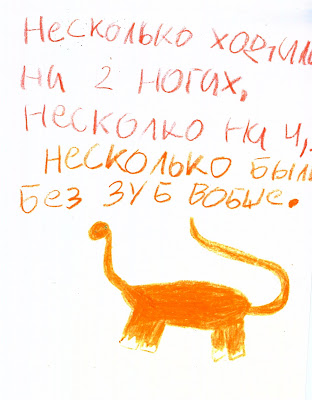 Несколько ходили
на 2 ногах,
несколко на 4,
несколько были
без зуб вобше.